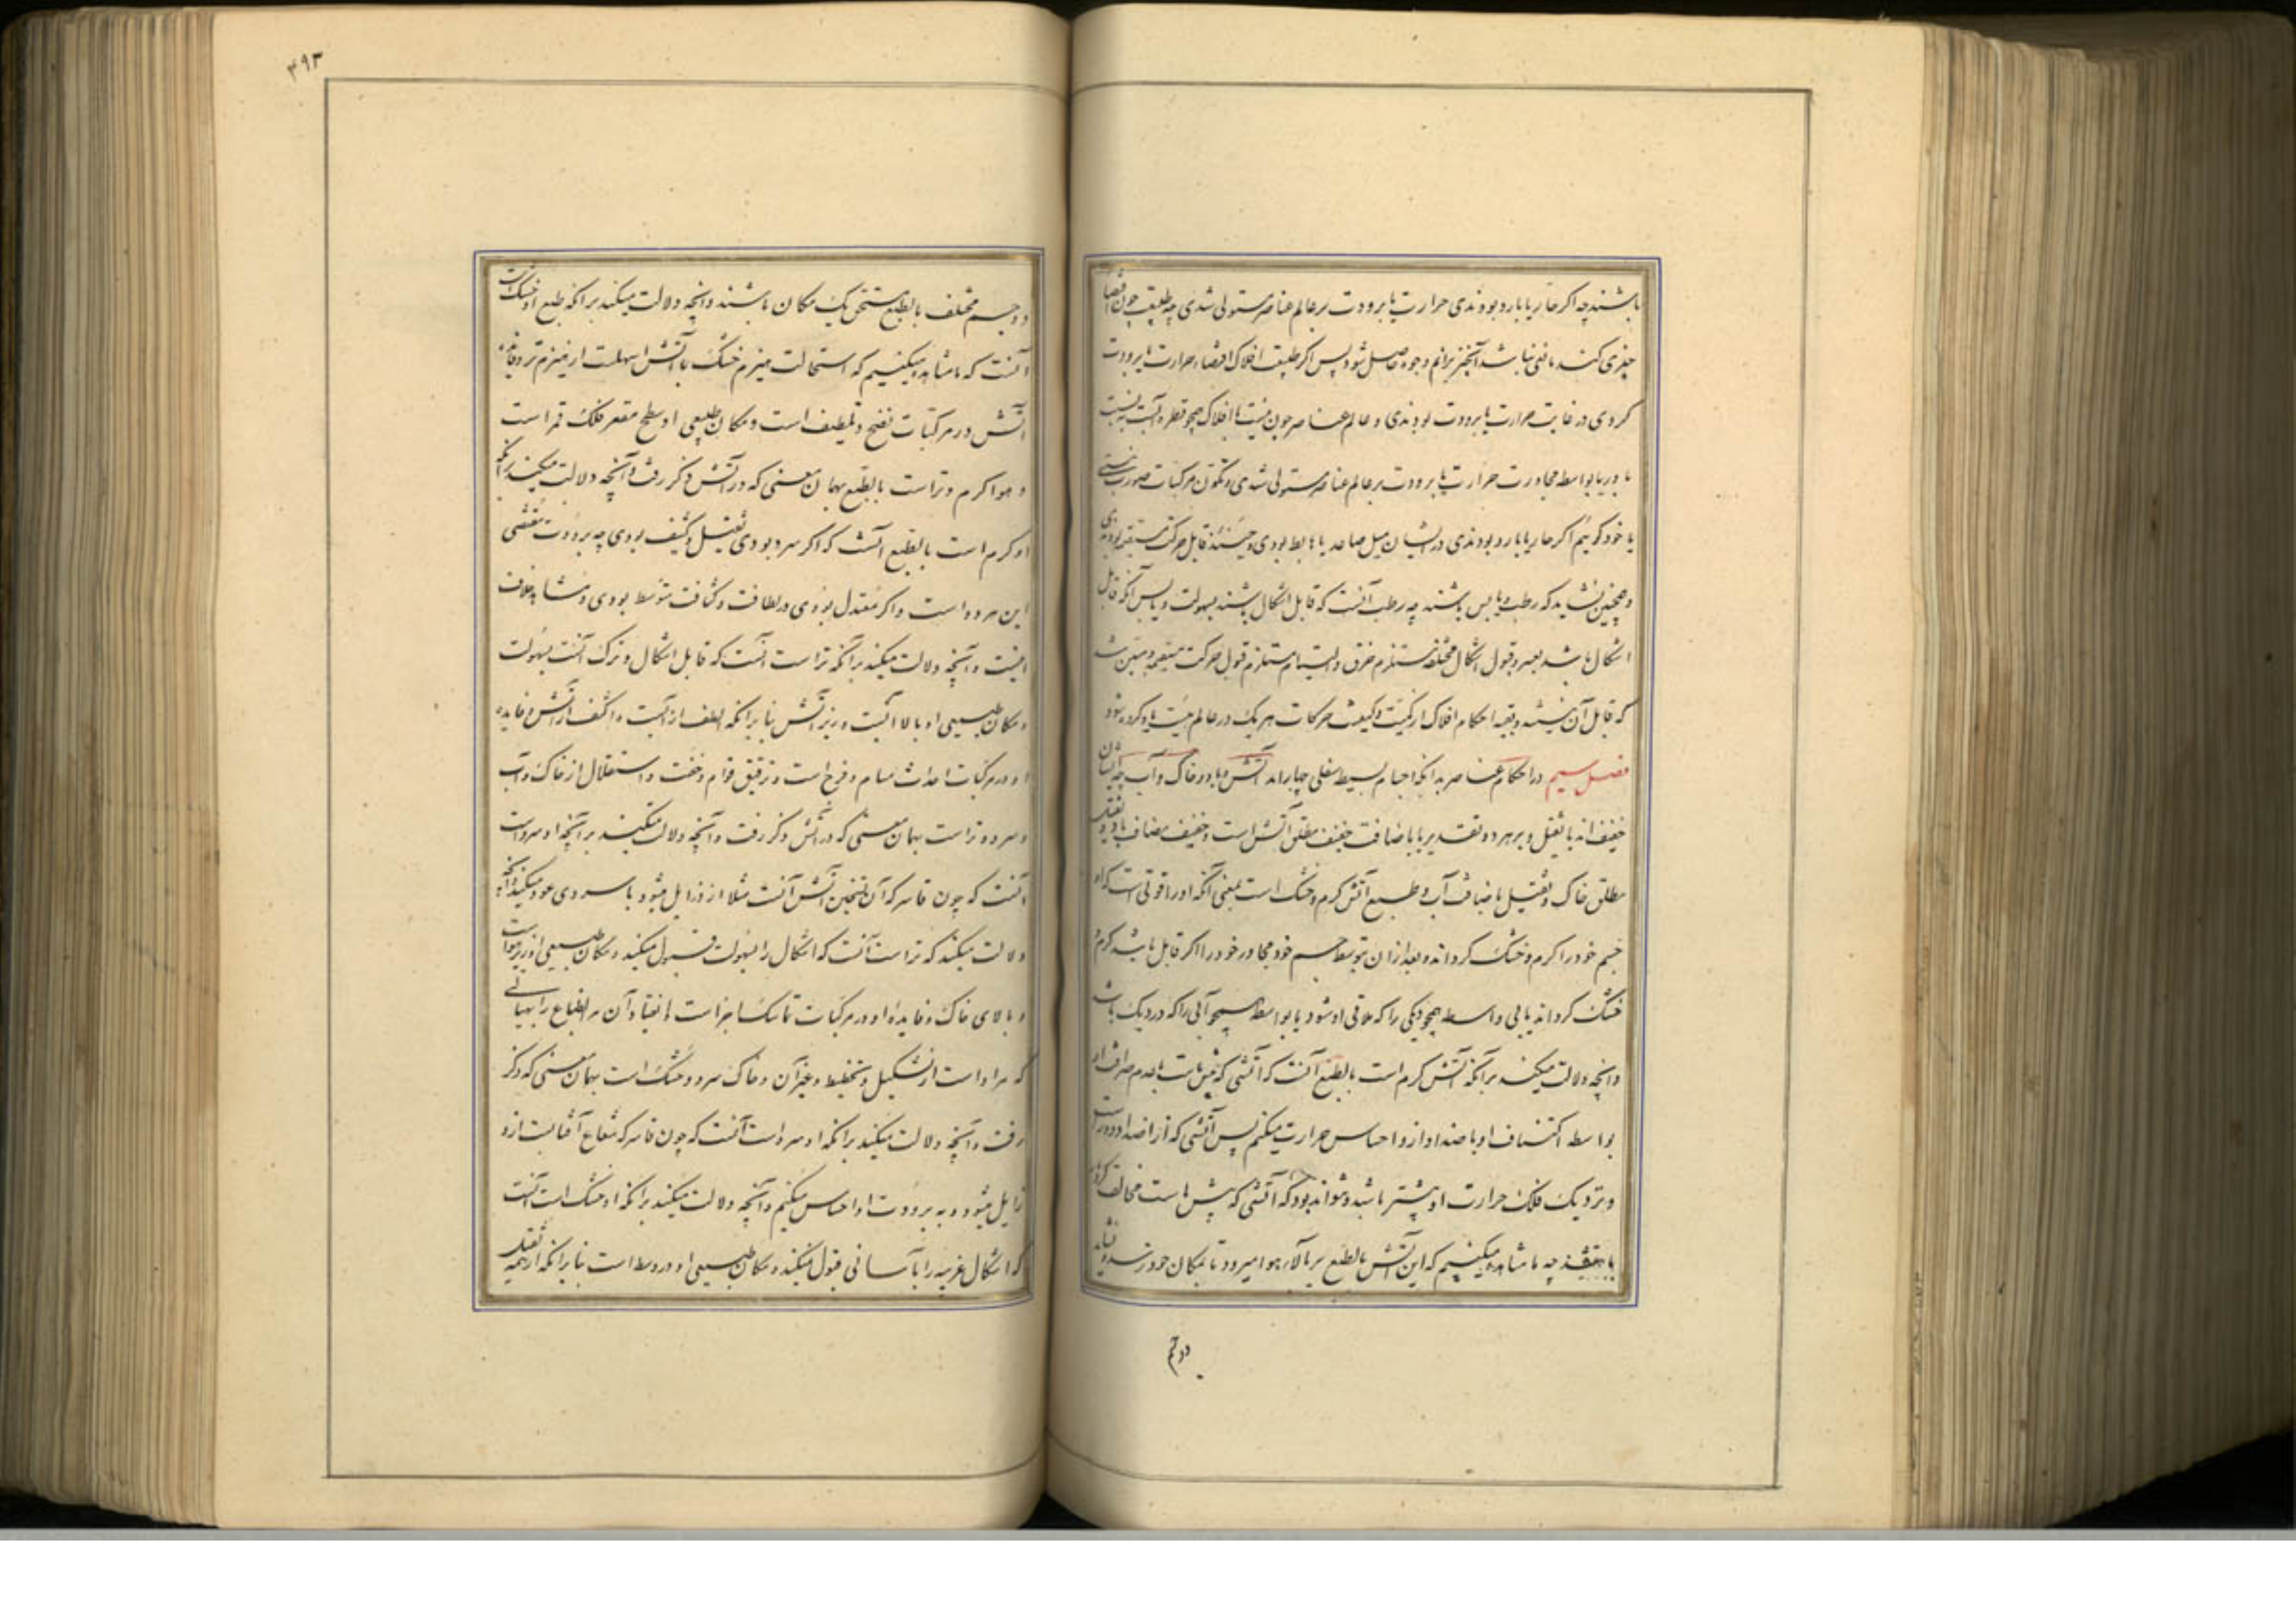 باشند چه اکر حار یا بارد بودندی حرارت یا برودت بر عالم عناصر مستولی شدی چه طبیعت چون اقتضا
چیزی کند مانعی نباشد آنچیز بر اتم وجوه حاصل شود پس اکر طبیعت افلاک اقتضاء حرارت یا برودت
کردی در غایت حرارت یا برودت بودندی و عالم عناصر چون نسبت با افلاک همچو قطره آبست به نسبت
با دریا بواسطه مجاورت حرارت یا برودت بر عالم عناصر مستولی شدی و تکون مرکبات صورت نبستی
یا خود کوئیم اکر حار یا بارد بودندی در ایشان میل صاعد یا هابط بودی و حینئذ قابل حرکت مستقیمه بودندی
و همچنین نشاید که رطب و یابس باشند چه رطب آنست که قابل اشکال باشند بسهولت و یابس آنکه قابل
اشکال باشد بعسر و قبول اشکال مختلفه مستلزم خرق و التیام مستلزم قبول حرکت مستقیمه و مبین شد
که قابل آن نیستند و بقیه احکام افلاک از کمیت و کیفیت حرکات هر یک در عالم هیئت یاد کرده شود
فصل سیم در احکام عناصر بدانکه اجسام بسیط سفلی چهاراند آتش و باد و خاک و آب چه ایشان
خفیف‌اند یا ثقیل و بر هر دو تقدیر یا باضافت خفیف مطلق آتش است و خفیف مضاف باد و ثقیل
مطلق خاک و ثقیل باضافت آب و طبع آتش کرم و خشک است بمعنی آنکه او را قوتی است که او
جسم خود را کرم و خشک کرداند و بعد از ان بتوسط جسم خود مجاور خود را اکر قابل باشد کرم و
خشک کرداند یا بی واسطه همچو دیکی را که ملاقی او شود یا بواسطه همچو آبی را که در دیک باشد
و آنچه دلالت میکند بر آنکه آتش کرم است بالطبع آنست که آتشی که پیش ماست با عدم صرافت او
بواسطه اکتناف او باضداد از و احساس حرارت میکنیم پس آتشی که از اضداد دور است
و بنزدیک فلک حرارت او بیشتر باشد و نتواند بود که آتشی که پیش ماست مخالف کرهٔ
باشد چه ما مشاهده میکنیم که این آتش بالطبع بر بالاء هوا میرود تا بمکان خود رسد و نشاید
دو جسم
دو جسم مختلف بالطبع مستحق یک مکان باشند و آنچه دلالت میکند بر آنکه طبع او خشک است
آنست که ما مشاهده میکنیم که استحالت هیزم خشک بآتش اسهلست از هیزم تر و فایده
آتش در مرکبات نضج و تلطیف است و مکان طبیعی او سطح مقعر فلک قمر است
و هوا کرم و تر است بالطبع بهمان معنی که در آتش ذکر رفت و آنچه دلالت میکند بر آنکه
او کرم است بالطبع آنست که اکر سرد بودی ثقیل و کثیف بودی چه برودت مقتضی
این هر دو است و اکر معتدل بودی در لطافت و کثافت متوسط بودی و مشاهد خلاف
اینست و آنچه دلالت میکند بر آنکه تر است آنست که قابل اشکال و ترک آنست بسهولت
و مکان طبیعی او بالا آبست و زیر آتش بنا بر آنکه الطف از آبست و اکثف از آتش و فایده
او در مرکبات احداث مسام و فرج است و ترقیق قوام و خفت و استقلال از خاک و آب
و سرد و تر است بهمان معنی که در آتش ذکر رفت و آنچه دلالت میکند بر آنچه او سرد است
آنست که چون قاسر که آن تسخین آتش آنست مثلا از و زایل میشود با سردی عود میکند و آنچه
دلالت میکند که تر است آنست که اشکال را بسهولت قبول میکند و مکان طبیعی او زیر هوا است
و بالای خاک و فایدهٔ او در مرکبات تماسک اجزا است و انقیاد آن مر انطباع را بهیأتی
که مراد است از تشکیل و تخطیط و غیر آن و خاک سرد و خشک است بهمان معنی که ذکر
رفت و آنچه دلالت میکند بر آنکه او سرد است آنست که چون قاسر که شعاع آفتابست از و
زایل میشود و به برودت او احساس میکنیم و آنچه دلالت میکند بر آنکه او خشک است آنست
که اشکال غریبه را بآسانی قبول نمیکند و مکان طبیعی او در وسط است بنا بر آنکه از همه ثقیل
۳۹۳